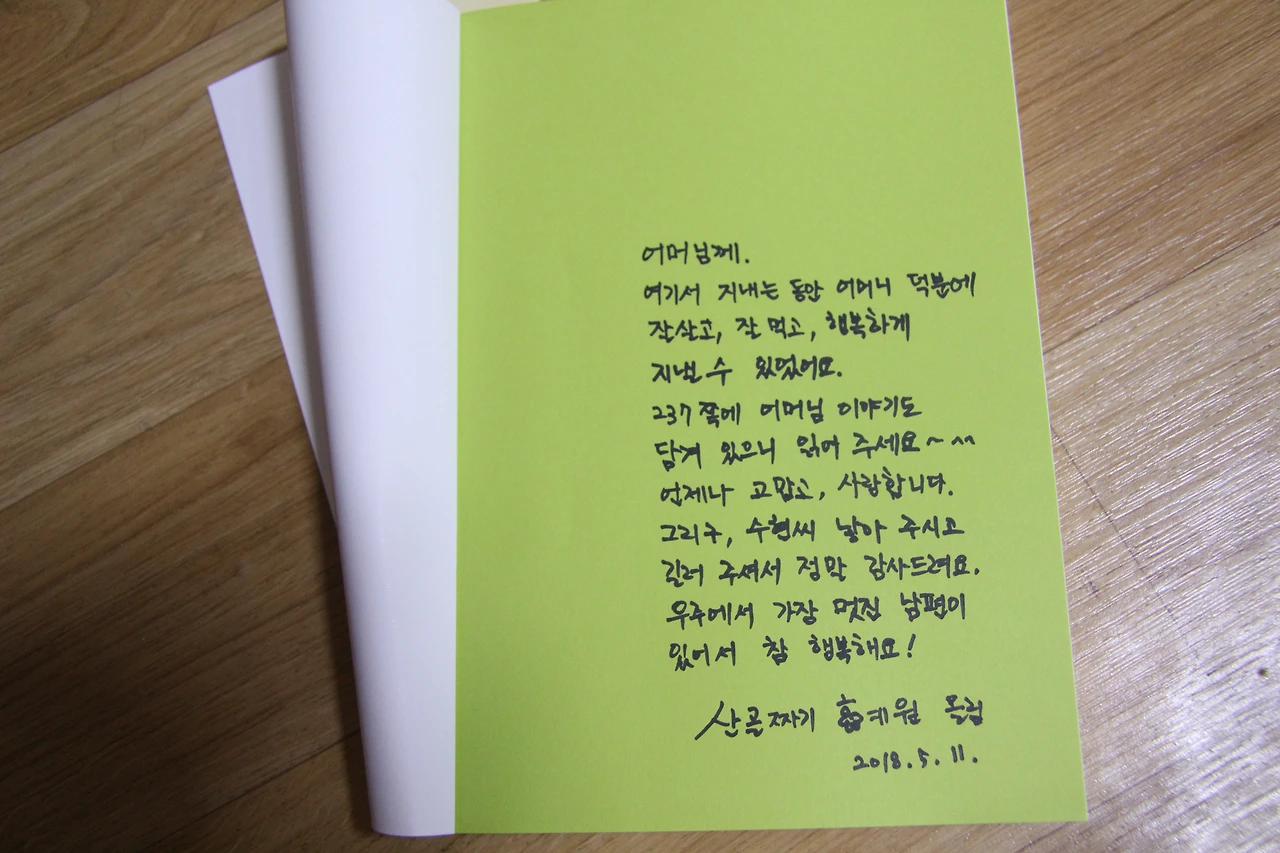 어머님께.
여기서 지내는 동안 어머니 덕분에
잘살고, 잘 먹고, 행복하게
지낼 수 있었어요.
237 쪽에 어머님 이야기도
담겨 있으니 읽어 주세요~ ^^
언제나 고맙고, 사랑합니다.
그리구, 수현씨 낳아 주시고
길러 주셔서 정말 감사드려요.
우주에서 가장 멋진 남편이
있어서 참 행복해요!
산골짜기 예원 올림
2018. 5. 11.